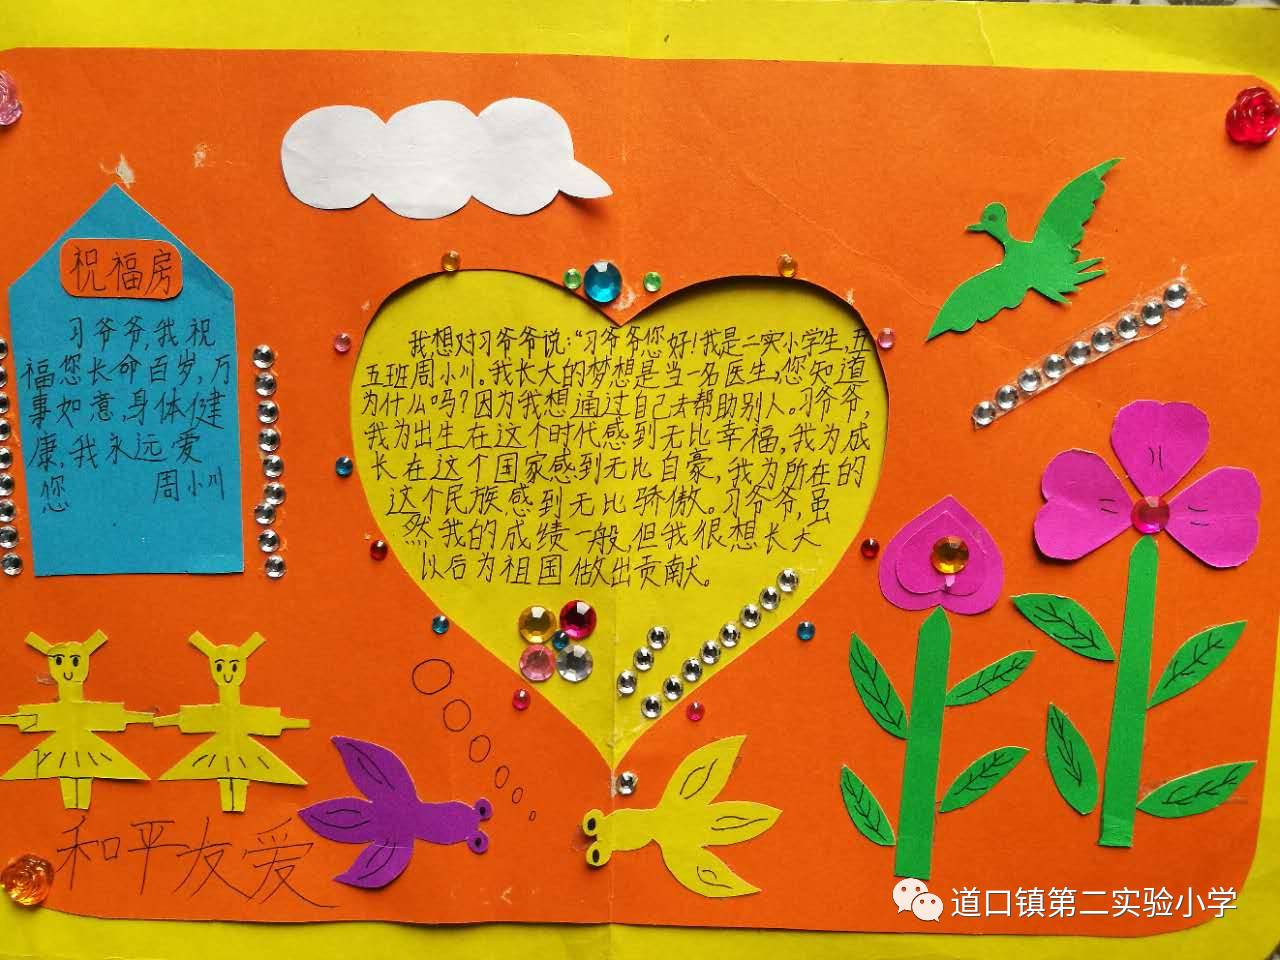 祝福房
习爷爷,我祝
福您长命百岁,万
事如意,身体健
康,我永远爱
您 周小川
我想对习爷爷说:“习爷爷您好!我是二实小学生,五
五班周小川。我长大的梦想是当一名医生,您知道
为什么吗?因为我想通过自己去帮助别人。习爷爷,
我为出生在这个时代感到无比幸福,我为成
长在这个国家感到无比自豪,我为所在的
这个民族感到无比骄傲。习爷爷,虽
然我的成绩一般,但我很想长大
以后为祖国做出贡献。
和平友爱
道口镇第二实验小学